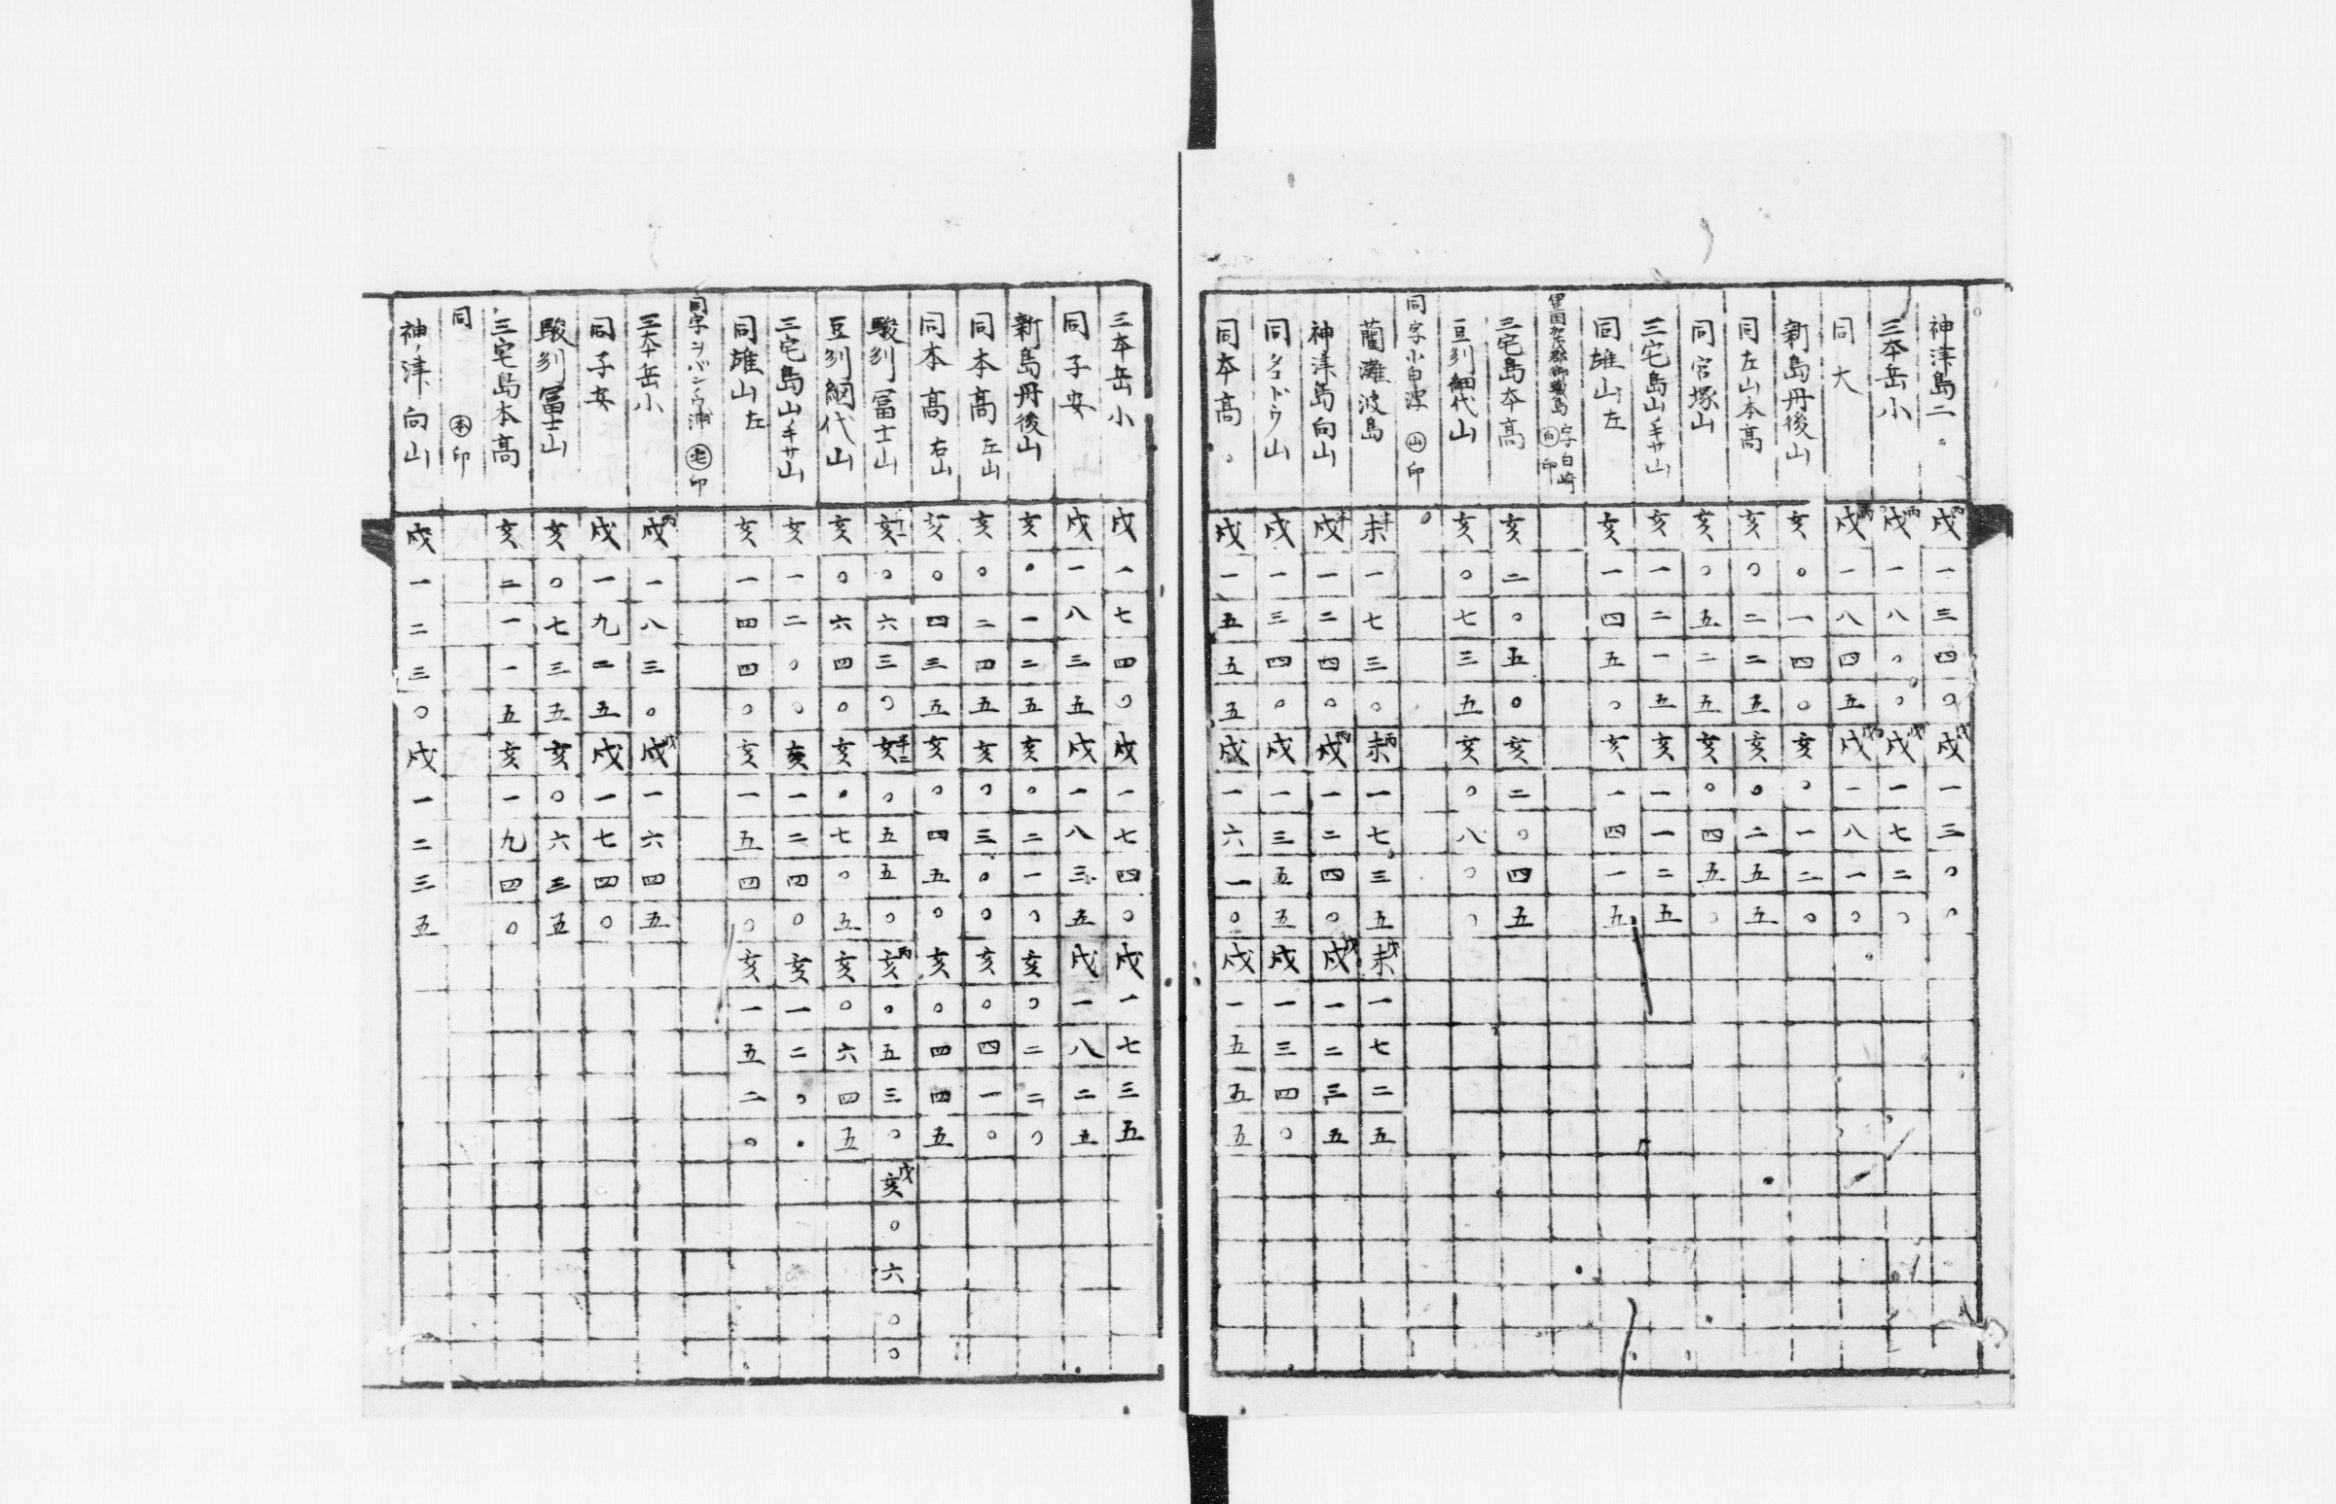 神津島二。 戌丙 一三四〇 戌戊 一三〇〇
三本岳小 戌丙 一八〇〇 戌戊 一七二〇
同大 戌丙 一八四五 戌戊 一八一〇
新島丹後山 亥〇一四〇 亥〇一二〇
同左山本高 亥〇二二五 亥〇二五五
同宮塚山 亥〇五二五 亥〇四五〇
三宅島山ノ手サ山 亥一二一五 亥一一二五
同雄山左 亥一四五〇 亥一四一五
御蔵島字白崎 ㊉印
三宅島本高 亥二〇五〇 亥二〇四五
豆州網代山 亥〇七三五 亥〇八〇〇
同字小白濱 ㊤印
藺灘波島 未 一七三〇 未丙 一七三五 未戊 一七二五
神津島向山 戌 一二四〇 戌丙 一二四〇 戌戊 一二三五
同タコドウ山 戌一三四〇 戌一三五五 戌一三四〇
同本高。 戌一五五五 戌一六一〇 戌一五五五
三本岳小 戌一七四〇 戌一七四〇 戌一七三五
同子安 戌一八三五 戌一八三五 戌一八二五
新島丹後山 亥〇一二五 亥〇二一〇 亥〇二二〇
同本高左山 亥〇二四五 亥〇三〇〇 亥〇四一〇
同本高右山 亥〇四三五 亥〇四五〇 亥〇四四五
駿州冨士山 亥 〇六三〇 亥 〇五五〇 亥丙 〇五三〇 亥戊 〇六〇〇
豆州網代山 亥〇六四〇 亥〇七〇五 亥〇六四五
三宅島山ノ手サ山 亥一二〇〇 亥一二四〇 亥一二〇〇
同雄山左 亥一四四〇 亥一五四〇 亥一五二〇
同字ヲバンウ浦 印
三本岳小 戌丙 一八三〇 戌戊 一六四五
同子安 戌一九二五 戌一七四〇
駿州冨士山 亥〇七三五 亥〇六三五
三宅島本高 亥二一一五 亥一九四〇
同 ㊍印
神ノ津向山 戌一二三〇 戌一二三五